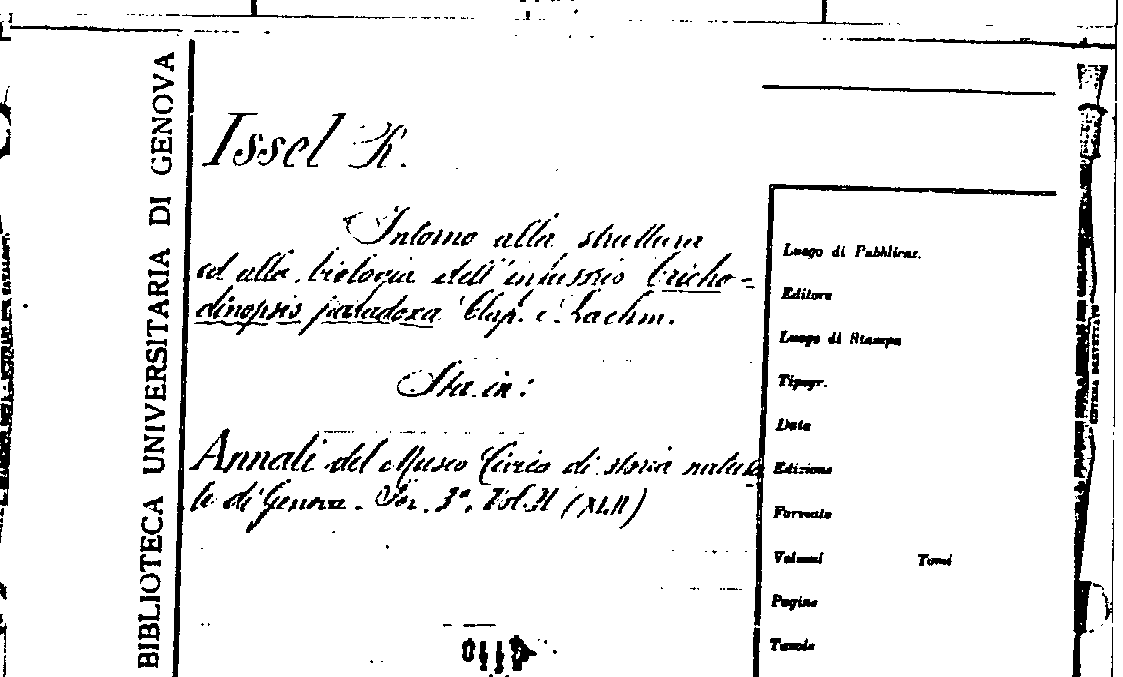 BIBLIOTECA UNIVERSITARIA DI GENOVA
Issel R.
Intorno alla struttura
ed alla biologia dell'infusorio Tricho-
dinopsis paradoxa Clap. e Lachm.
Sta in:
Annali del Museo Civico di storia natura
le di Genova. Ser. 3ª. Vol. II (XLII)
Luogo di Pubblicaz.
Editore
Luogo di Stampa
Tipogr.
Data
Edizione
Formato
Volumi Tomi
Pagine
Tavole